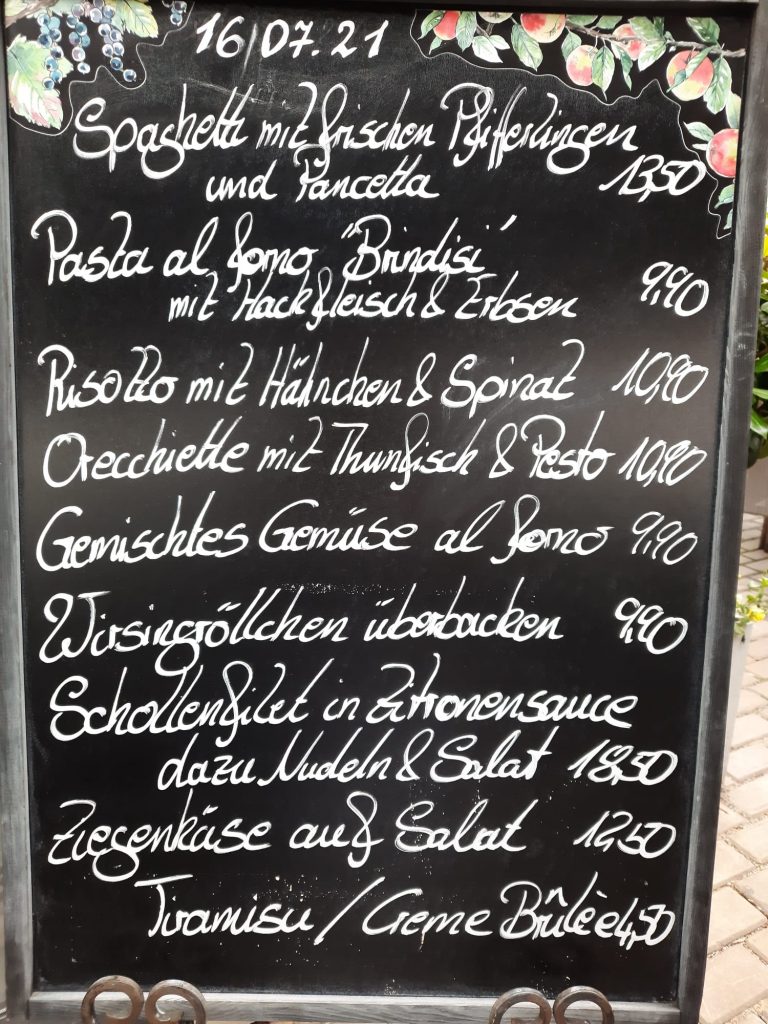 16/07.21
Spaghetti mit frischen Pfifferlingen
und Pancetta 13,50
Pasta al forno "Brindisi"
mit Hackfleisch & Erbsen 9,90
Risotto mit Hähnchen & Spinat 10,90
Orecchiette mit Thunfisch & Pesto 10,90
Gemischtes Gemüse al forno 9,90
Wirsingröllchen überbacken 9,90
Schollenfilet in Zitronensauce
dazu Nudeln & Salat 18,50
Ziegenkäse auf Salat 12,50
Tiramisu / Creme Brûlèe 4,50